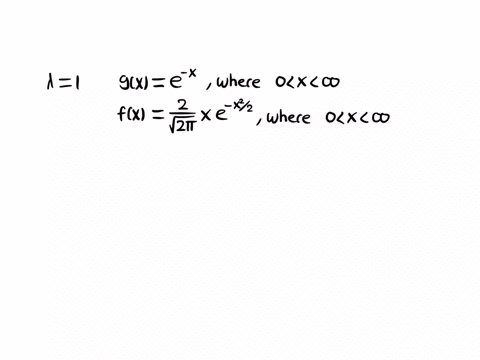 λ=1 g(x) = e^{-x}, where 0<x<∞
f(x) = \frac{2}{\sqrt{2π}} x e^{-x²/2}, where 0<x<∞